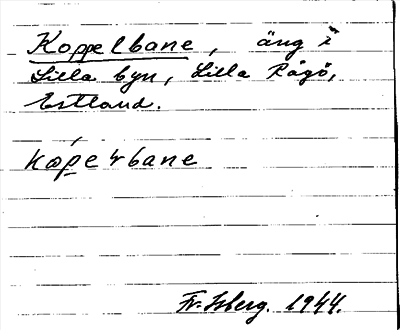 Koppelbane, äng i
Lilla byn, Lilla Rågö,
Estland.
Fr. Isberg. 1944.